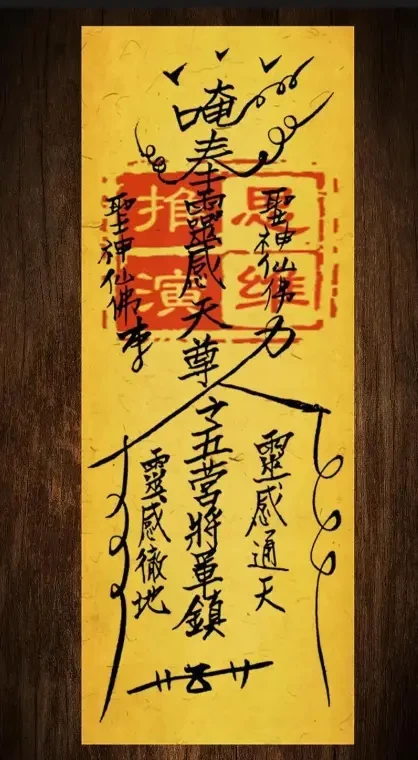 聖神仙佛力
靈感通天
唵奉靈感天尊之五營將軍鎮
聖神仙佛
靈感徹地
思維
推演